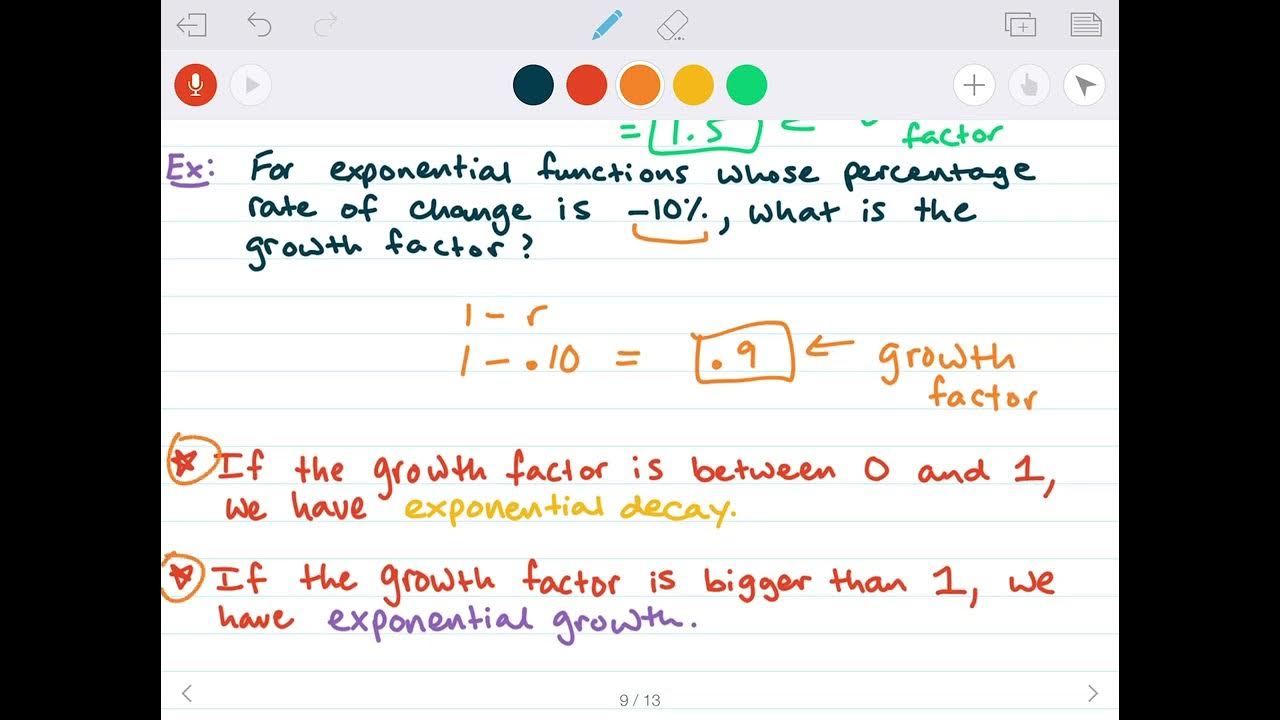 = 1.5 ←
factor
Ex: For exponential functions whose percentage
rate of change is -10%, what is the
growth factor?
1 - r
1 - .10 = .9 ← growth
factor
If the growth factor is between 0 and 1,
we have exponential decay.
If the growth factor is bigger than 1, we
have exponential growth.
9 / 13